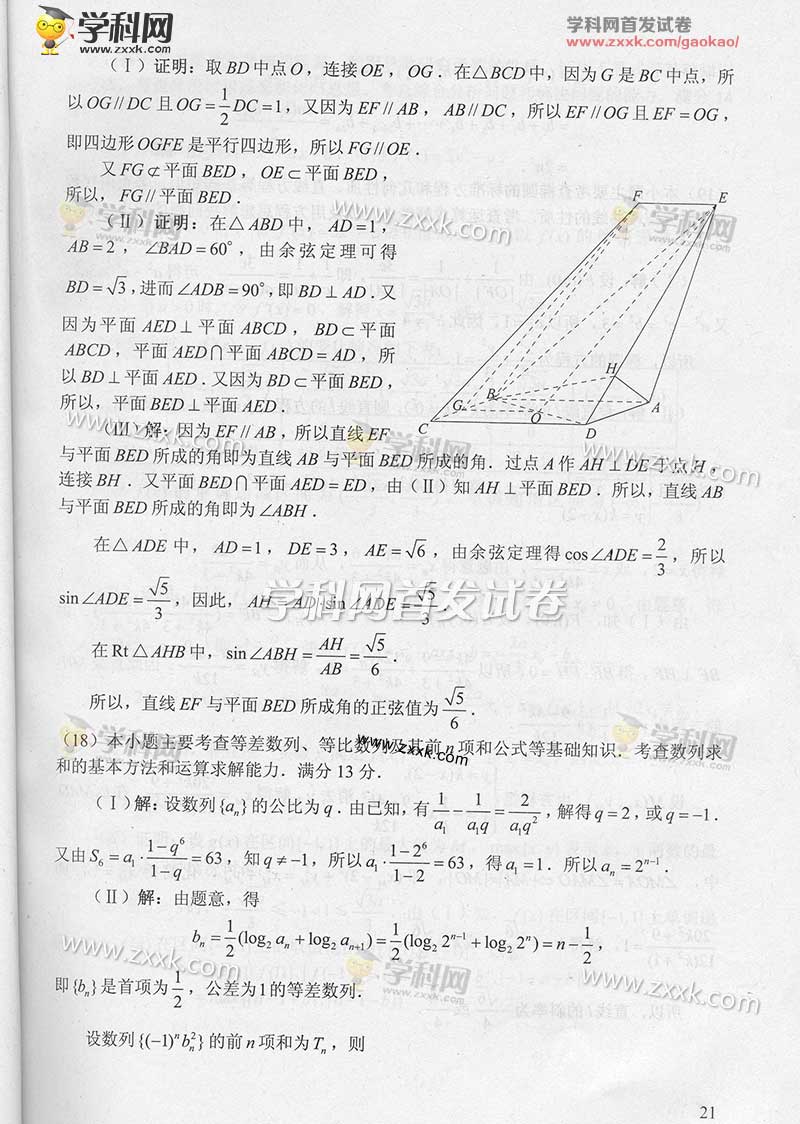 学科网
www.zxxk.com
学科网首发试卷
www.zxxk.com/gaokao/
(Ⅰ)证明：取BD中点O，连接OE，OG．在△BCD中，因为G是BC中点，所
以OG∥DC且OG=1/2DC=1，又因为EF∥AB，AB∥DC，所以EF∥OG且EF=OG，
即四边形OGFE是平行四边形，所以FG∥OE．
又FG⊄平面BED，OE⊂平面BED，
所以，FG∥平面BED．
(Ⅱ)证明：在△ABD中，AD=1，
AB=2，∠BAD=60°，由余弦定理可得
BD=√3，进而∠ADB=90°，即BD⊥AD．又
因为平面AED⊥平面ABCD，BD⊂平面
ABCD，平面AED∩平面ABCD=AD，所
以BD⊥平面AED．又因为BD⊂平面BED，
所以，平面BED⊥平面AED．
F E H G B O A C D
(Ⅲ)解：因为EF∥AB，所以直线EF
与平面BED所成的角即为直线AB与平面BED所成的角．过点A作AH⊥DE于点H，
连接BH．又平面BED∩平面AED=ED，由(Ⅱ)知AH⊥平面BED．所以，直线AB
与平面BED所成的角即为∠ABH．
在△ADE中，AD=1，DE=3，AE=√6，由余弦定理得cos∠ADE=2/3，所以
sin∠ADE=√5/3，因此，AH=AD·sin∠ADE=√5/3．
学科网首发试卷
在Rt△AHB中，sin∠ABH=AH/AB=√5/6．
所以，直线EF与平面BED所成角的正弦值为√5/6．
(18)本小题主要考查等差数列、等比数列及其前n项和公式等基础知识．考查数列求
和的基本方法和运算求解能力．满分13分．
(Ⅰ)解：设数列{aₙ}的公比为q．由已知，有1/a₁-1/(a₁q)=2/(a₁q²)，解得q=2，或q=-1．
又由S₆=a₁·(1-q⁶)/(1-q)=63，知q≠-1，所以a₁·(1-2⁶)/(1-2)=63，得a₁=1．所以aₙ=2ⁿ⁻¹．
(Ⅱ)解：由题意，得
bₙ=1/2(log₂aₙ+log₂aₙ₊₁)=1/2(log₂2ⁿ⁻¹+log₂2ⁿ)=n-1/2，
即{bₙ}是首项为1/2，公差为1的等差数列．
设数列{(-1)ⁿbₙ²}的前n项和为Tₙ，则
21